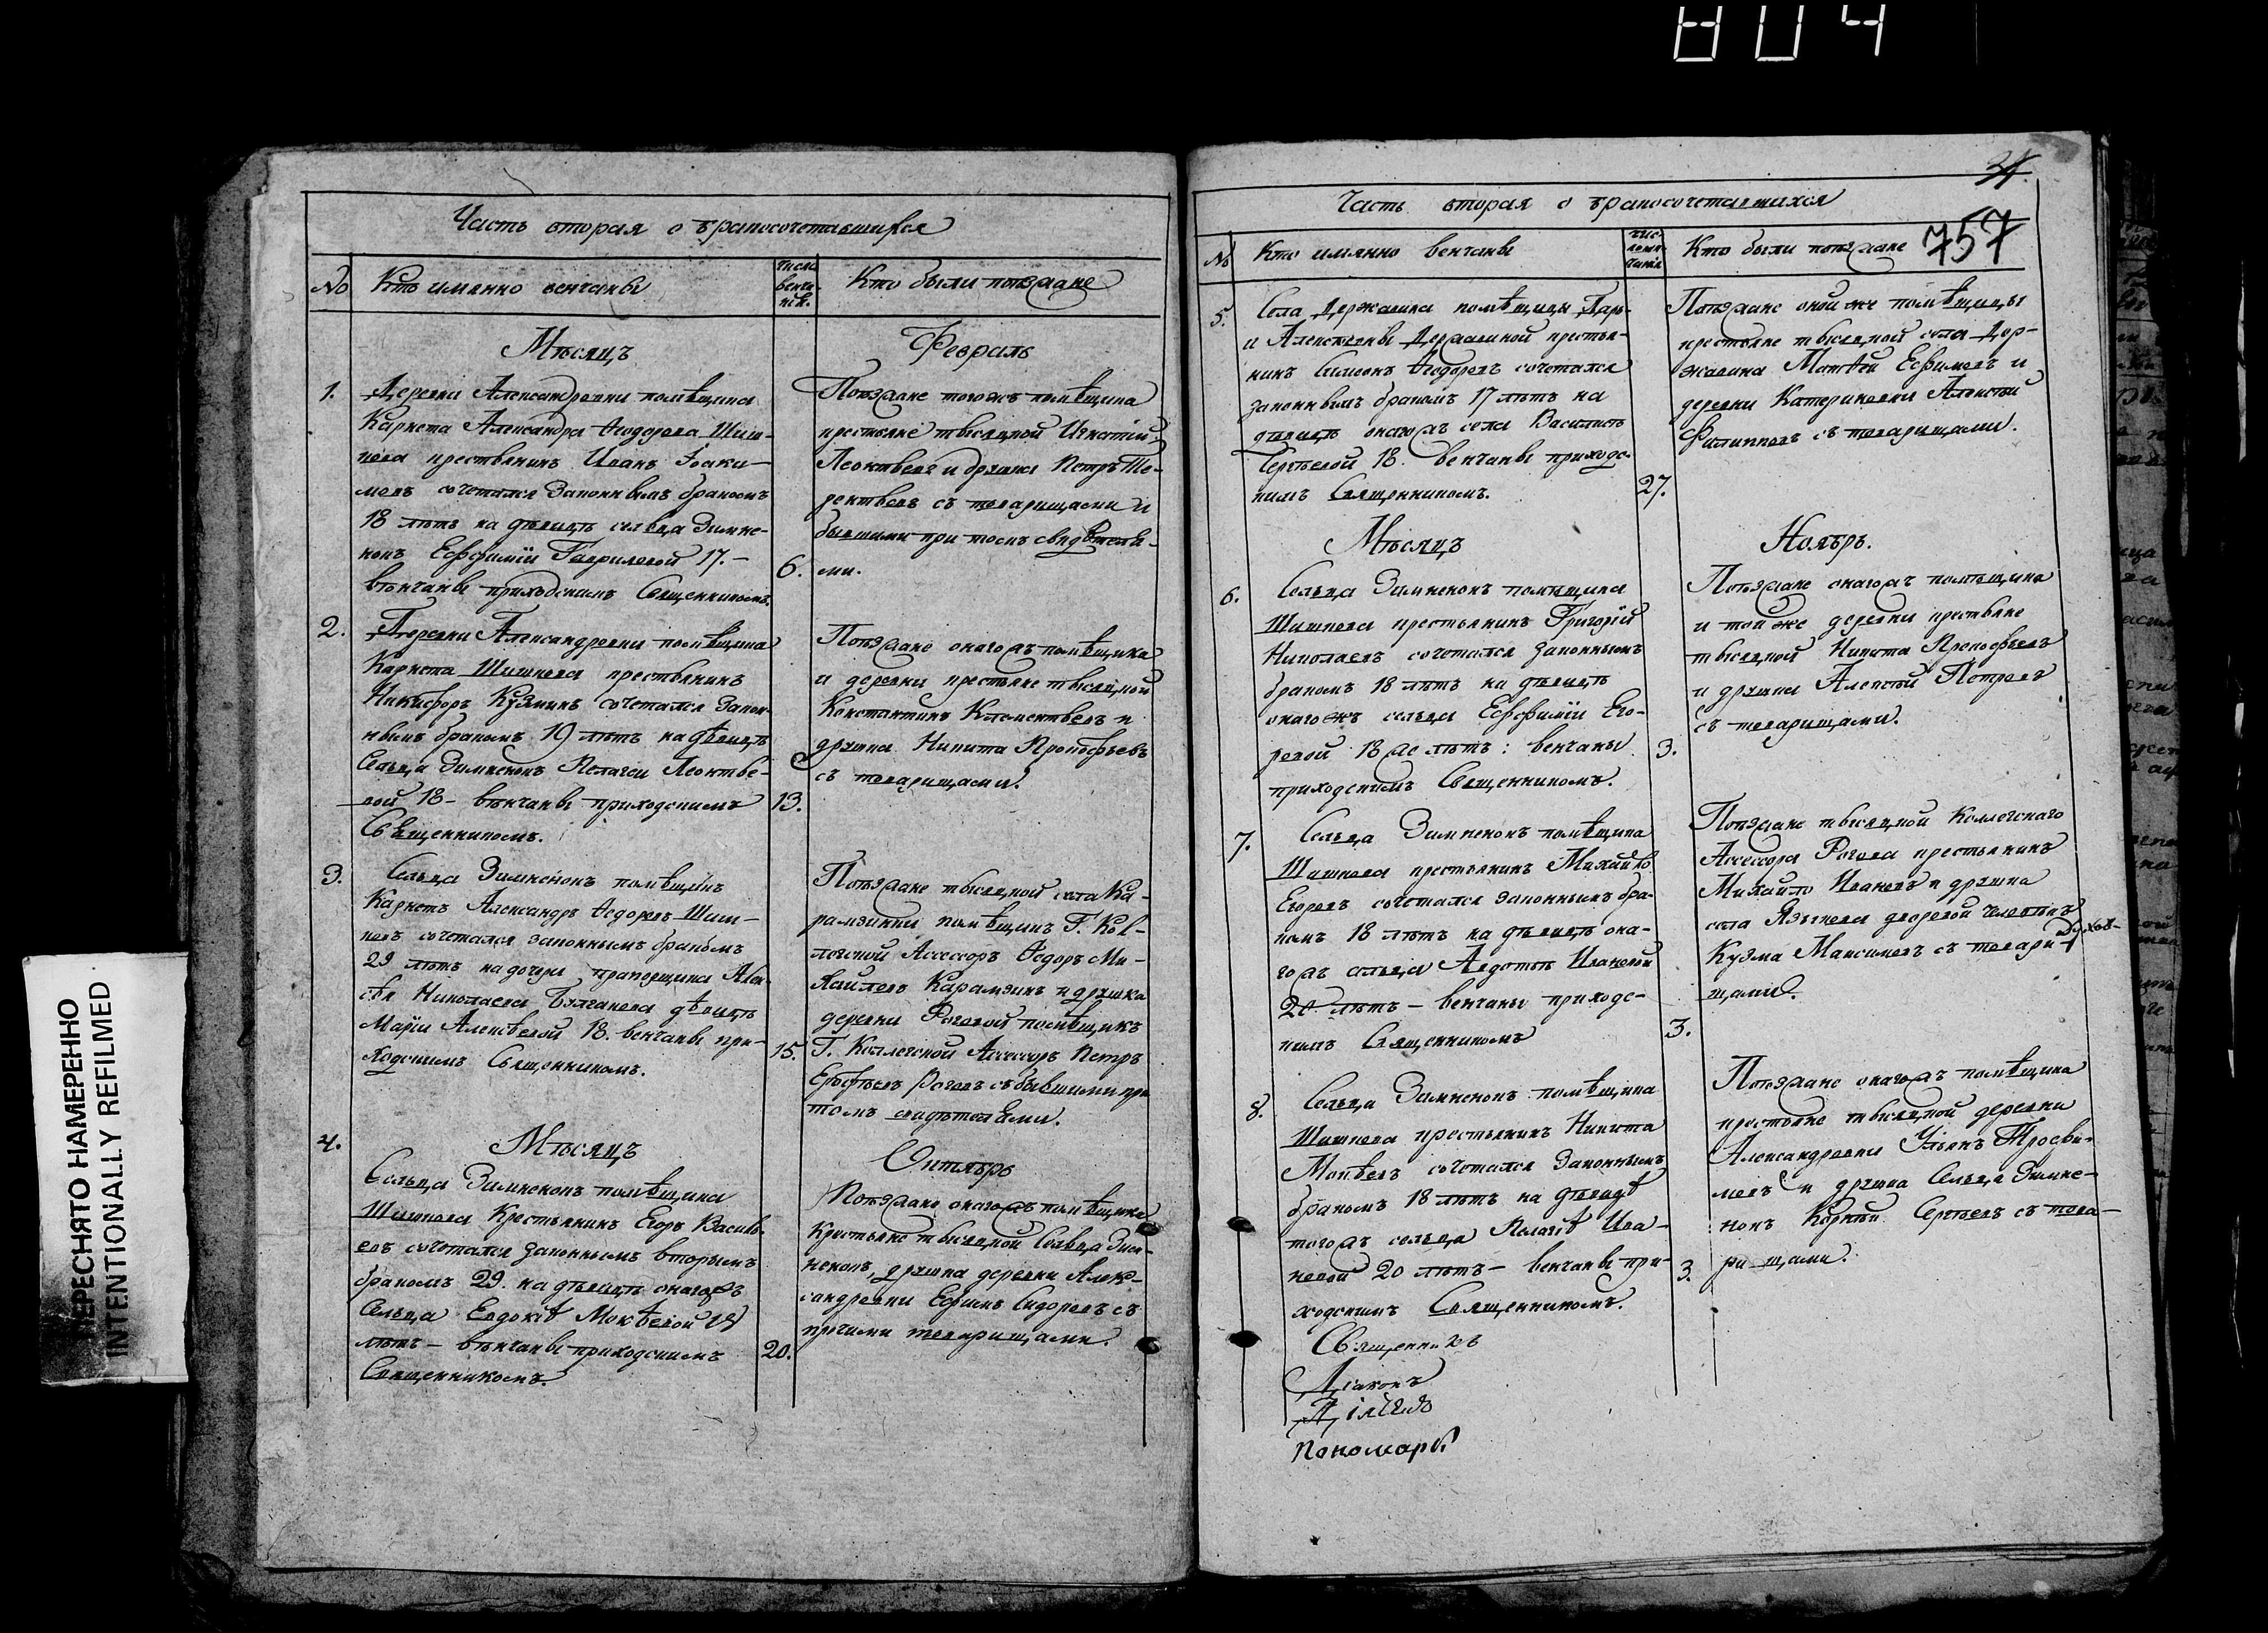 804
ПЕРЕСНЯТО НАМЕРЕННО
INTENTIONALLY REFILMED
Часть вторая о бракосочетавшихся
№ Кто имянно венчаны
числ. венча- нія.
Кто были поѣзжане
Мѣсяцъ
Февраль
1. Деревни Александровки помѣщика
Карнета Александра Ѳедорова Шиш-
кова крестьянинъ Иванъ Іоаки-
мовъ сочетался Законнымъ бракомъ
18 лѣтъ на дѣвицѣ сельца Зимне-
нокъ Евфиміи Гавриловой 17. –
вѣнчаны приходскимъ Священникомъ.
6.
Поѣзжане тогожъ помѣщика
крестьяне тысяцкой Игнатій
Леонтьевъ и дружка Петръ Те-
рентьевъ съ товарищами и
бывшими при томъ свидѣтеля-
ми.
2. Деревни Александровки помѣщика
Карнета Шишкова крестьянинъ
Никифоръ Кузминъ сочетался Закон-
нымъ бракомъ 19 лѣтъ на дѣвицѣ
Сельца Зимненокъ Пелагеи Леонтье-
вой 18 – вѣнчаны приходскимъ
Священникомъ.
13.
Поѣзжане онагожъ помѣщика
и деревни крестьяне тысяцкой
Константинъ Клементьевъ и
дружка Никита Прокофьевъ
съ товарищами.
3. Сельца Зимненокъ помѣщикъ
Карнетъ Александръ Ѳедоровъ Шиш-
ковъ сочетался законнымъ бракомъ
29 лѣтъ на дочери прапорщика Алек-
сѣя Николаева дѣвицѣ
Марьи Алексѣевой 18. венчаны при-
ходскимъ Священникомъ.
15.
Поѣзжане тысяцкой села Ка-
рамзинки помѣщикъ Г. Кол-
лежской Ассессоръ Ѳедоръ Ми-
хайловъ Карамзинъ и дружка
деревни Роговой помѣщикъ
Г. Коллежской Ассессоръ Петръ
Ерофѣевъ Роговъ съ бывшими при
томъ свидѣтелями.
4. Мѣсяцъ
Октябрь
Сельца Зимненокъ помѣщика
Шишкова Крестьянинъ Егоръ Василь-
евъ сочетался законнымъ вторымъ
бракомъ 29. на дѣвицѣ онагожъ
Сельца Евдокіѣ Мокѣевой 19
лѣтъ – вѣнчаны приходскимъ
Священникомъ.
20.
Поѣзжане онагожъ помѣщика
Крестьяне тысяцкой Сельца Зим-
ненокъ, дружка деревни Алек-
сандровки Ефимъ Сидоровъ съ
прочими товарищами.
757
Часть вторая о бракосочетавшихся
№ Кто имянно венчаны
Кто были поѣзжане
5. Села Державина помѣщицы Дарь-
и Алексѣевны Державиной крестья-
нинъ Симеонъ Ѳедоровъ сочетался
законнымъ бракомъ 17 лѣтъ на
дѣвицѣ онагожъ села Василисѣ
Сергѣевой 18. венчаны приходс-
кимъ Священникомъ.
27.
Поѣзжане онойже помѣщицы
крестьяне тысяцкой села Дер-
жавина Матвѣй Ефимовъ и
деревни Катериновки Алексѣй
Филипповъ съ товарищами.
Мѣсяцъ
Ноябрь.
6. Сельца Зимненокъ помѣщика
Шишкова крестьянинъ Григорій
Николаевъ сочетался законнымъ
бракомъ 18 лѣтъ на дѣвицѣ
онагожъ сельца Евфиміи Его-
ровой 18 лѣтъ: венчаны
приходскимъ Священникомъ.
3.
Поѣзжане онагожъ помѣщика
и той же деревни крестьяне
тысяцкой Никита Прокофьевъ
и дружка Алексѣй Петровъ
съ товарищами.
7. Сельца Зимненокъ помѣщика
Шишкова крестьянинъ Михайло
Егоровъ сочетался законнымъ бра-
комъ 18 лѣтъ на дѣвицѣ она-
гожъ сельца Авдотьѣ Ивановой
20 лѣтъ – венчаны приходс-
кимъ Священникомъ
3.
Поѣзжане тысяцкой Коллежскаго
Ассессора Рогова крестьянинъ
Михайло Ивановъ и дружка
села Языкова дворовой человѣкъ
Кузма Максимовъ съ товари-
щами.
8. Сельца Зимненокъ помѣщика
Шишкова крестьянинъ Никита
Мокѣевъ сочетался Законнымъ
бракомъ 18 лѣтъ на дѣвицѣ
тогожъ сельца Пелагіѣ Ива-
новой 20 лѣтъ – венчаны при-
ходскимъ Священникомъ.
3.
Поѣзжане онагожъ помѣщика
крестьяне тысяцкой деревни
Александровки Ульянъ Трофи-
мовъ и дружка Сельца Зимне-
нокъ Корнѣй Сергѣевъ съ това-
рищами.
Священникъ
Діаконъ
Пономарь